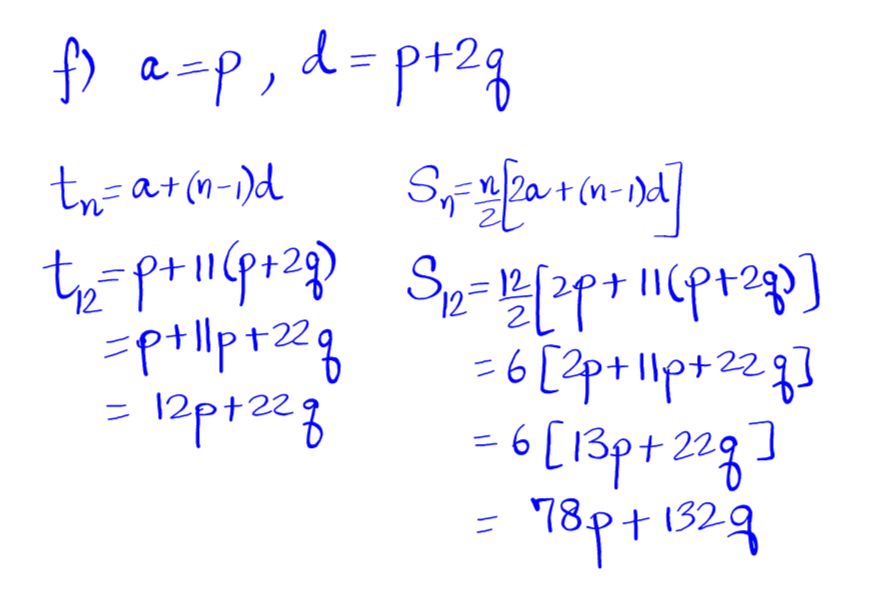 f) a = p, d = p+2q
tₙ = a+(n-1)d
t₁₂ = p+11(p+2q)
= p+11p+22q
= 12p+22q
Sₙ = n/2[2a+(n-1)d]
S₁₂ = 12/2[2p+11(p+2q)]
= 6[2p+11p+22q]
= 6[13p+22q]
= 78p+132q